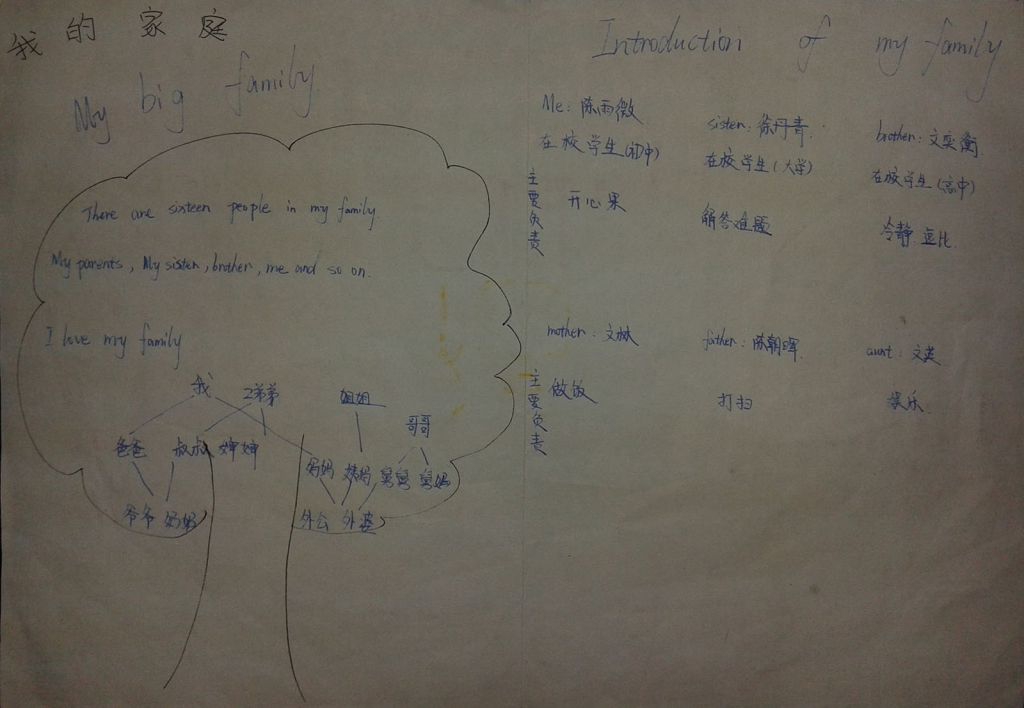 我的家庭
My big family.
There are sixteen people in my family.
My parents, My sister, brother, me and so on.
I love my family
我 2弟弟 姐姐
哥哥
爸爸 叔叔 婶婶 妈妈 姨妈 舅舅 舅妈
爷爷 奶奶 外公 外婆
Introduction of my family
Me: 陈雨微 sister: 徐丹青. brother: 文奕衡
在校学生(初中) 在校学生(大学) 在校学生(高中)
主要负责 开心果 解答难题 冷静.逗比.
mother: 文林 father: 陈朝晖 aunt: 文英
主要负责 做饭 打扫 娱乐.